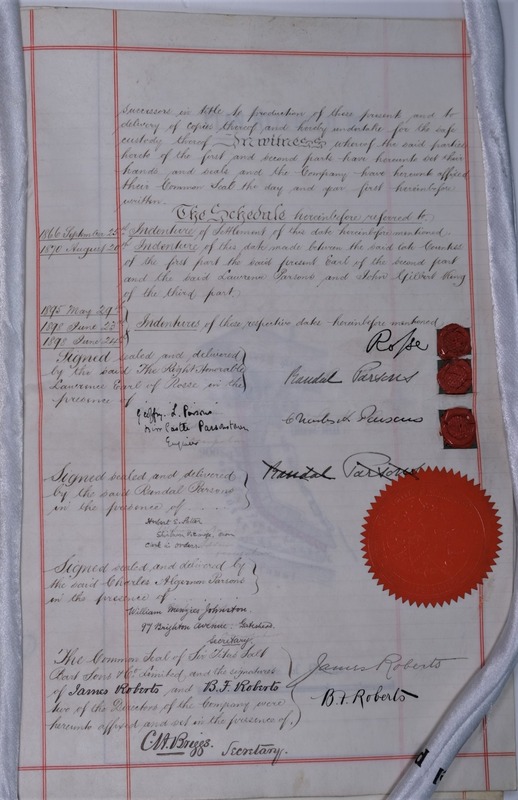 successors in title to production of these presents and to
delivery of copies thereof and hereby undertake for the safe
custody thereof In witness whereof the said parties
hereto of the first and second parts have hereunto set their
hands and seals and the Company have hereunto affixed
their Common Seal the day and year first hereinbefore
written.
The Schedule hereinbefore referred to
1866 September 25th Indenture of Settlement of this date hereinbefore mentioned.
1870 August 20th Indenture of this date made between the said late Countess
of the first part the said present Earl of the second part
and the said Lawrence Parsons, and John Gilbert King
of the third part.
1895 May 29th
1898 June 23rd Indentures of these respective dates hereinbefore mentioned
1898 June
Signed sealed and delivered
by the said The Right Honorable
Lawrence Earl of Rosse in the
presence of
Rosse
Randal Parsons
Geoffry L. Parsons
Birr Castle Parsonstown
Engineer
Charles A Parsons
Signed sealed and delivered
by the said Randal Parsons
in the presence of
Randal Parsons
Signed sealed, and delivered by
the said Charles Algernon Parsons
in the presence of
William Menzies Johnston
97 Brighton Avenue. Gateshead.
Secretary.
The Common Seal of Sir Titus Salt
Bart Sons & Co. Limited, and the signatures
of James Roberts and B. F. Roberts
two of the Directors, of the Company were
hereunto affixed and set in the presence of,
James Roberts
B. F. Roberts
C. H. Briggs. Secretary.